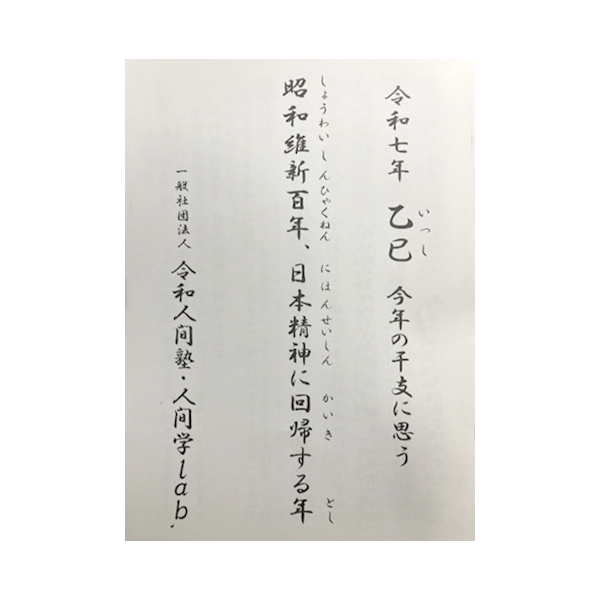 令和七年 乙巳 今年の干支に思う
いっし
昭和維新百年、日本精神に回帰する年
しょうわいしんひゃくねん にほんせいしん かいき とし
一般社団法人 令和人間塾・人間学lab.